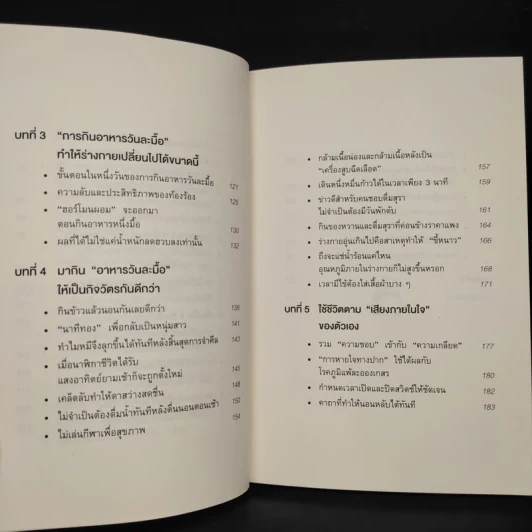 บทที่ 3 "การกินอาหารวันละมื้อ"
ทำให้ร่างกายเปลี่ยนไปได้ขนาดนี้
• ขั้นตอนในหนึ่งวันของการกินอาหารวันละมื้อ 121
• ความลับและประสิทธิภาพของท้องร้อง 125
• "ฮอร์โมนผอม" จะออกมา
ตอนกินอาหารหนึ่งมื้อ 130
• ผลที่ได้ไม่ใช่แค่น้ำหนักลดฮวบลงเท่านั้น 132
บทที่ 4 มากิน "อาหารวันละมื้อ"
ให้เป็นกิจวัตรกันดีกว่า
• กินข้าวแล้วนอนกันเลยดีกว่า 139
• "นาทีทอง" เพื่อกลับเป็นหนุ่มสาว 141
• ทำไมหมีจึงลุกขึ้นได้ทันทีหลังสิ้นสุดการจำศีล 143
• เมื่อนาฬิกาชีวิตได้รับ
แสงอาทิตย์ยามเช้าก็จะถูกตั้งใหม่ 145
• เคล็ดลับทำให้ตาสว่างสดชื่น 148
• ไม่จำเป็นต้องดื่มน้ำทันทีหลังตื่นนอนตอนเช้า 150
• ไม่เล่นกีฬาเพื่อสุขภาพ 154
• กล้ามเนื้อน่องและกล้ามเนื้อหลังเป็น
"เครื่องสูบฉีดเลือด" 157
• เดินหนึ่งหมื่นก้าวได้ในเวลาเพียง 3 นาที 159
• ข่าวดีสำหรับคนชอบดื่มสุรา
ไม่จำเป็นต้องมีวันพักตับ 161
• กินของหวานและดื่มสุราที่ค่อนข้างราคาแพง 164
• ร่างกายอุ่นเกินไปคือสาเหตุทำให้ "ขี้หนาว" 166
• ถึงจะแช่น้ำร้อนแค่ไหน
อุณหภูมิภายในร่างกายก็ไม่สูงขึ้นหรอก 168
• เวลามีไข้ต้องใส่เสื้อผ้าบาง ๆ 171
บทที่ 5 ใช้ชีวิตตาม "เสียงภายในใจ"
ของตัวเอง
• รวม "ความชอบ" เข้ากับ "ความเกลียด" 177
• "การหายใจทางปาก" ใช้ได้ผลกับ
โรคภูมิแพ้ละอองเกสร 180
• กำหนดเวลาเปิดและปิดสวิตช์ให้ชัดเจน 182
• คาถาที่ทำให้นอนหลับได้ทันที 183